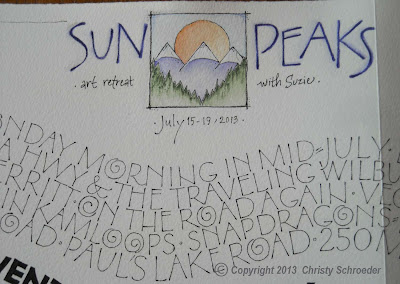 SUN PEAKS
· art retreat with Suzie ·
· July 15-19, 2013 ·
NDAY MORNING IN MID-JULY ·
A HWY & THE TRAVELING WILBU
ERRITT · ON THE ROAD AGAIN · VE
IN KAMLOOPS · SNAPDRAGONS
OAD · PAUL'S LAKE ROAD · 250
VEN
© Copyright 2013 Christy Schroeder